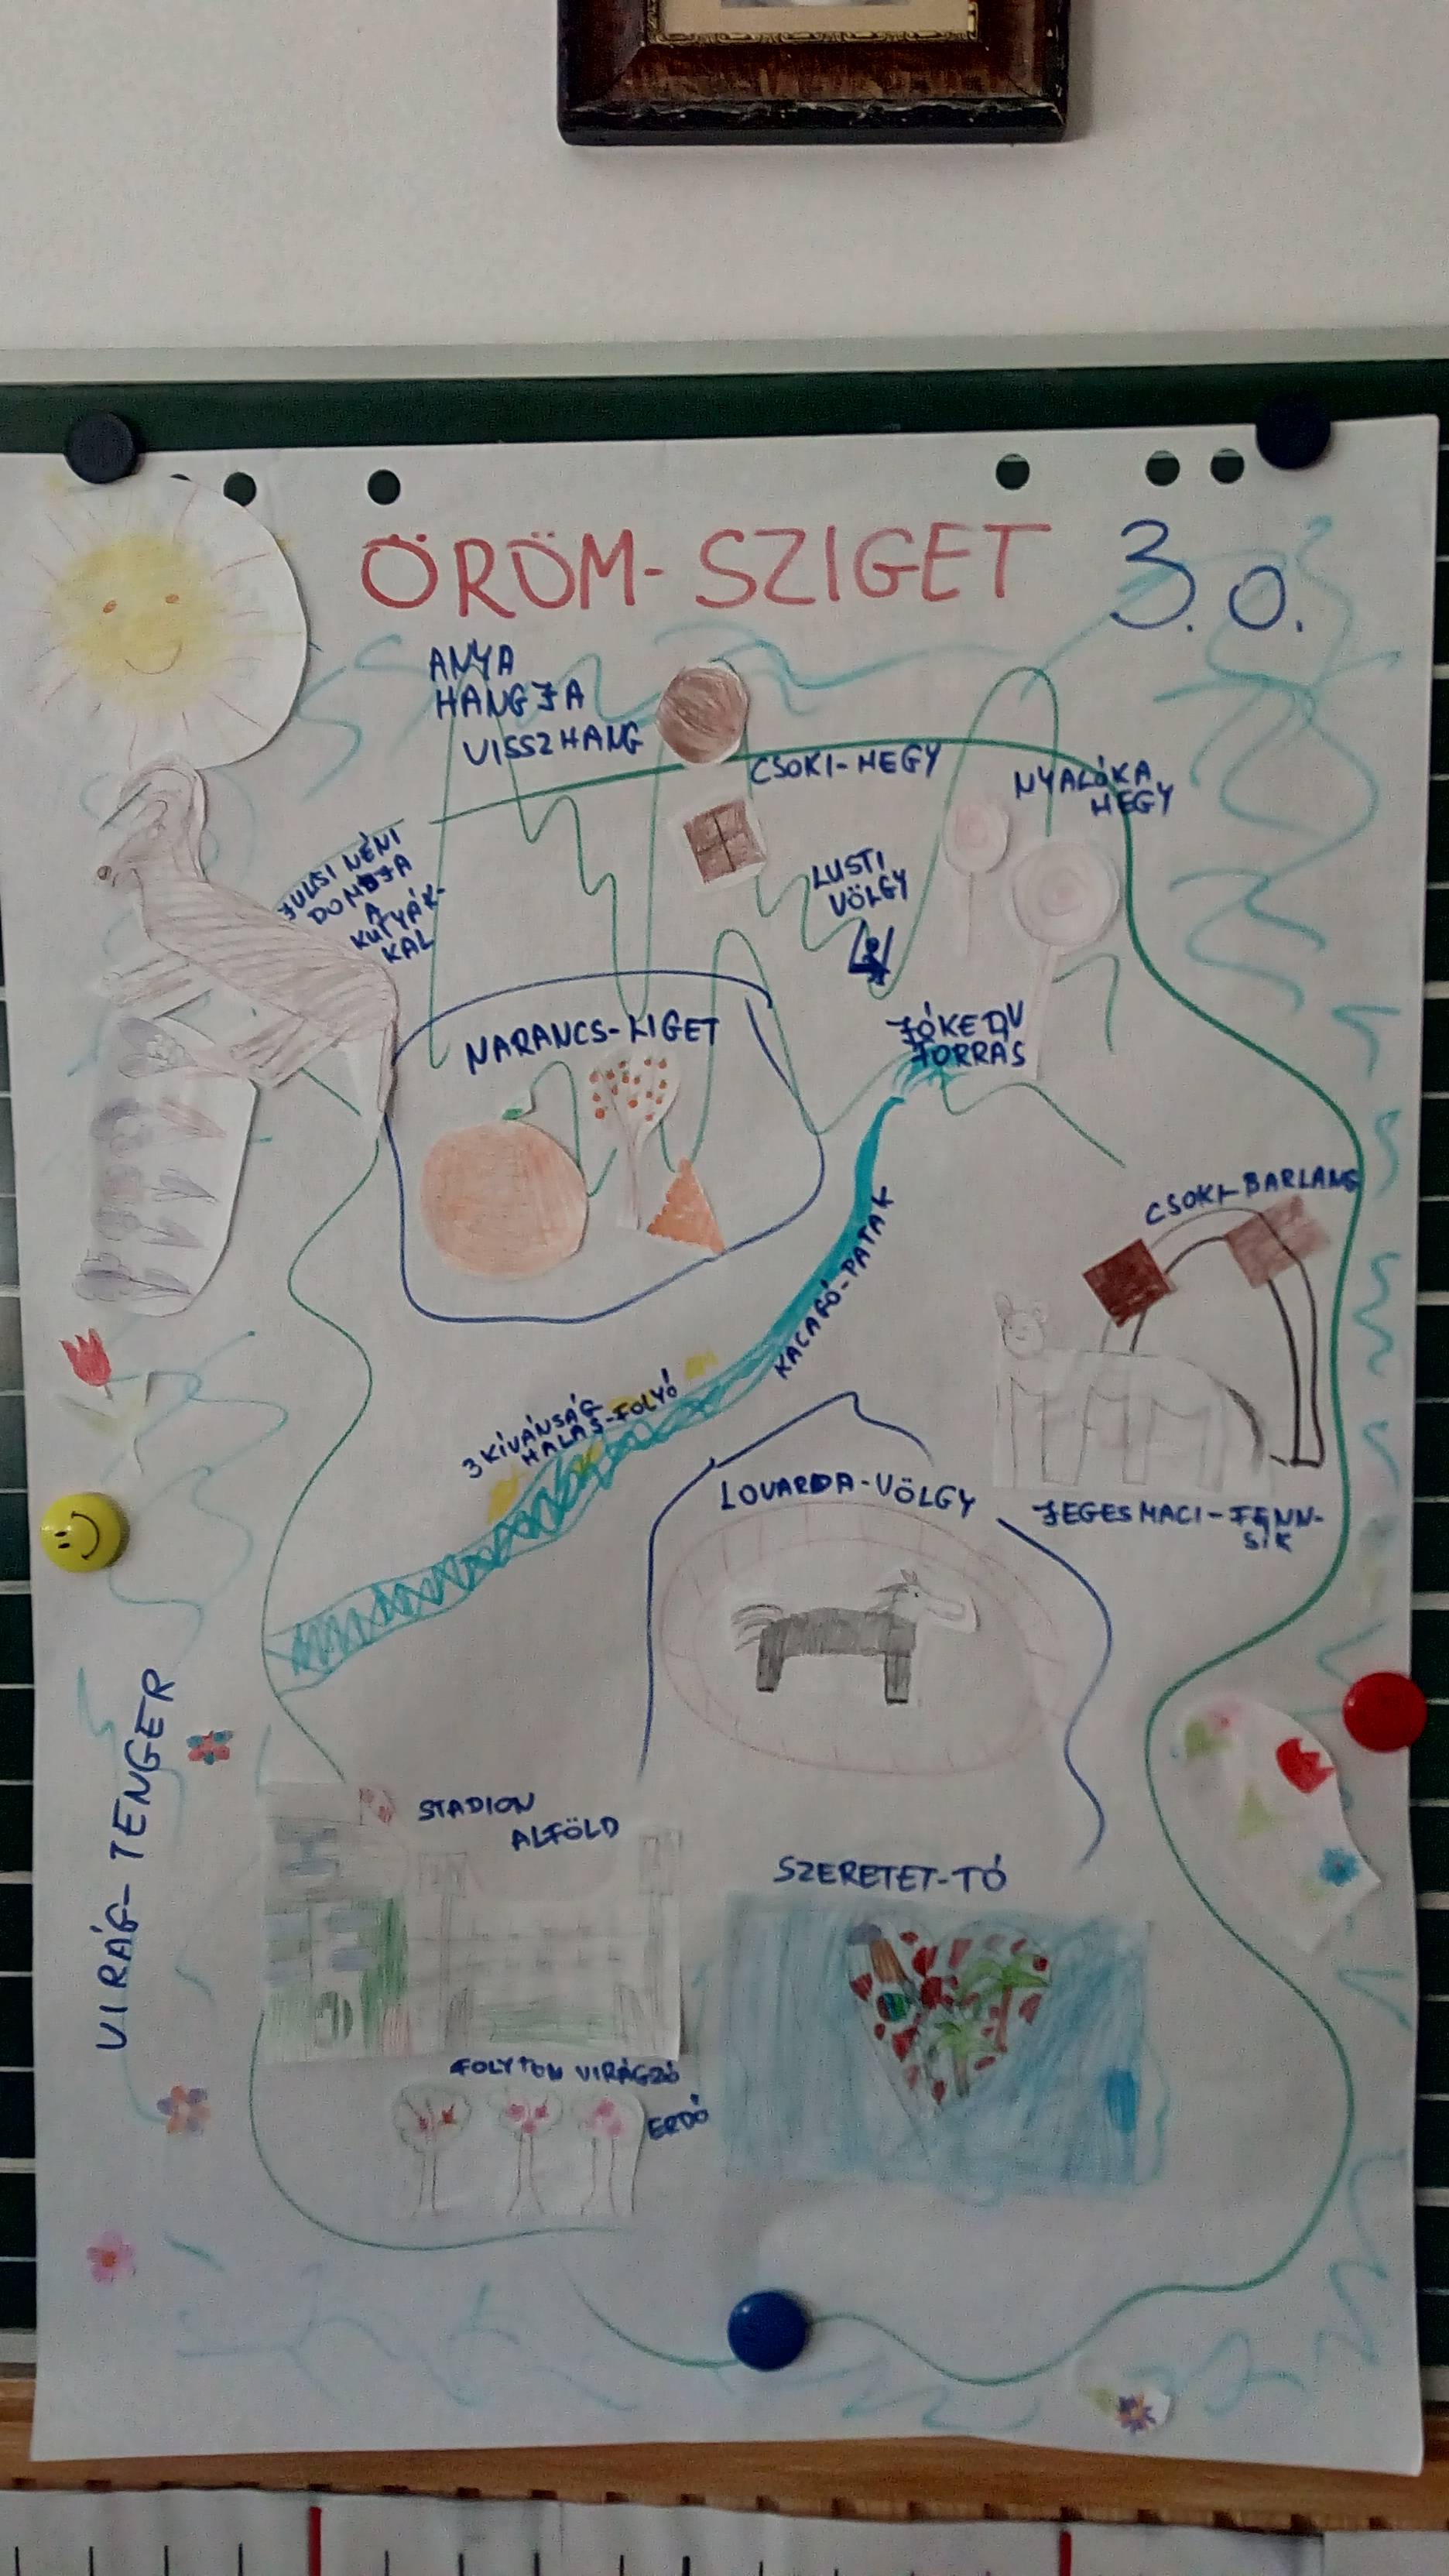 ÖRÖM-SZIGET 3.0.
ANYA
HANGJA
VISSZHANG
CSOKI-HEGY
NYALÓKA
HEGY
JULISI NÉNI
DOMBJA
A
KUTYÁK-
KAL
LUSTI
VÖLGY
NARANCS-LIGET
JÓKEDV
FORRÁS
CSOKI-BARLANG
KACAGÓ-PATAK
3 KÍVÁNSÁG
HALAS-FOLYÓ
LOVARDA-VÖLGY
JEGESMACI-FENN-
SÍK
VIRÁG-TENGER
STADION
ALFÖLD
SZERETET-TÓ
FOLYTON VIRÁGZÓ
ERDŐ